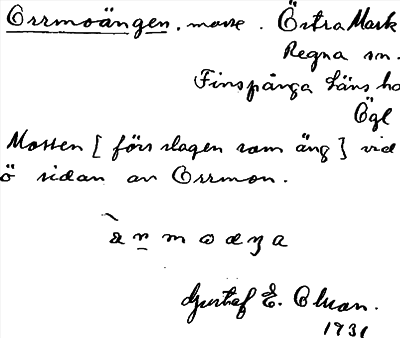 Orrmoängen, mosse. Östra Mark
Regna sn.
Finspånga läns ha
Ögl
Mossen [förr slagen som äng] vid
ö sidan av Orrmon.
Gustaf E. Olson.
1931